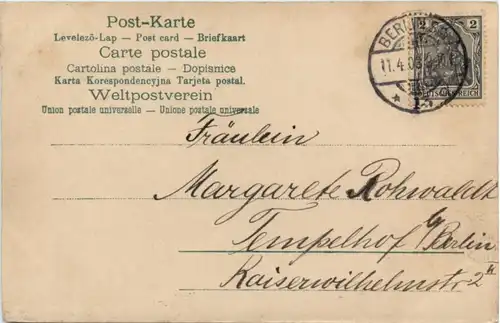 Post-Karte
Levelező-Lap — Post card — Briefkaart
Carte postale
Cartolina postale — Dopisnice
Karta Korespondencyjna Tarjeta postal.
Weltpostverein
Union postale universelle — Unione postale universale
2 2
BERLIN
11.4.
Fräulein
Margarete Rohwaldt
Tempelhof b/Berlin
Kaiserwilhelmstr. 2 II